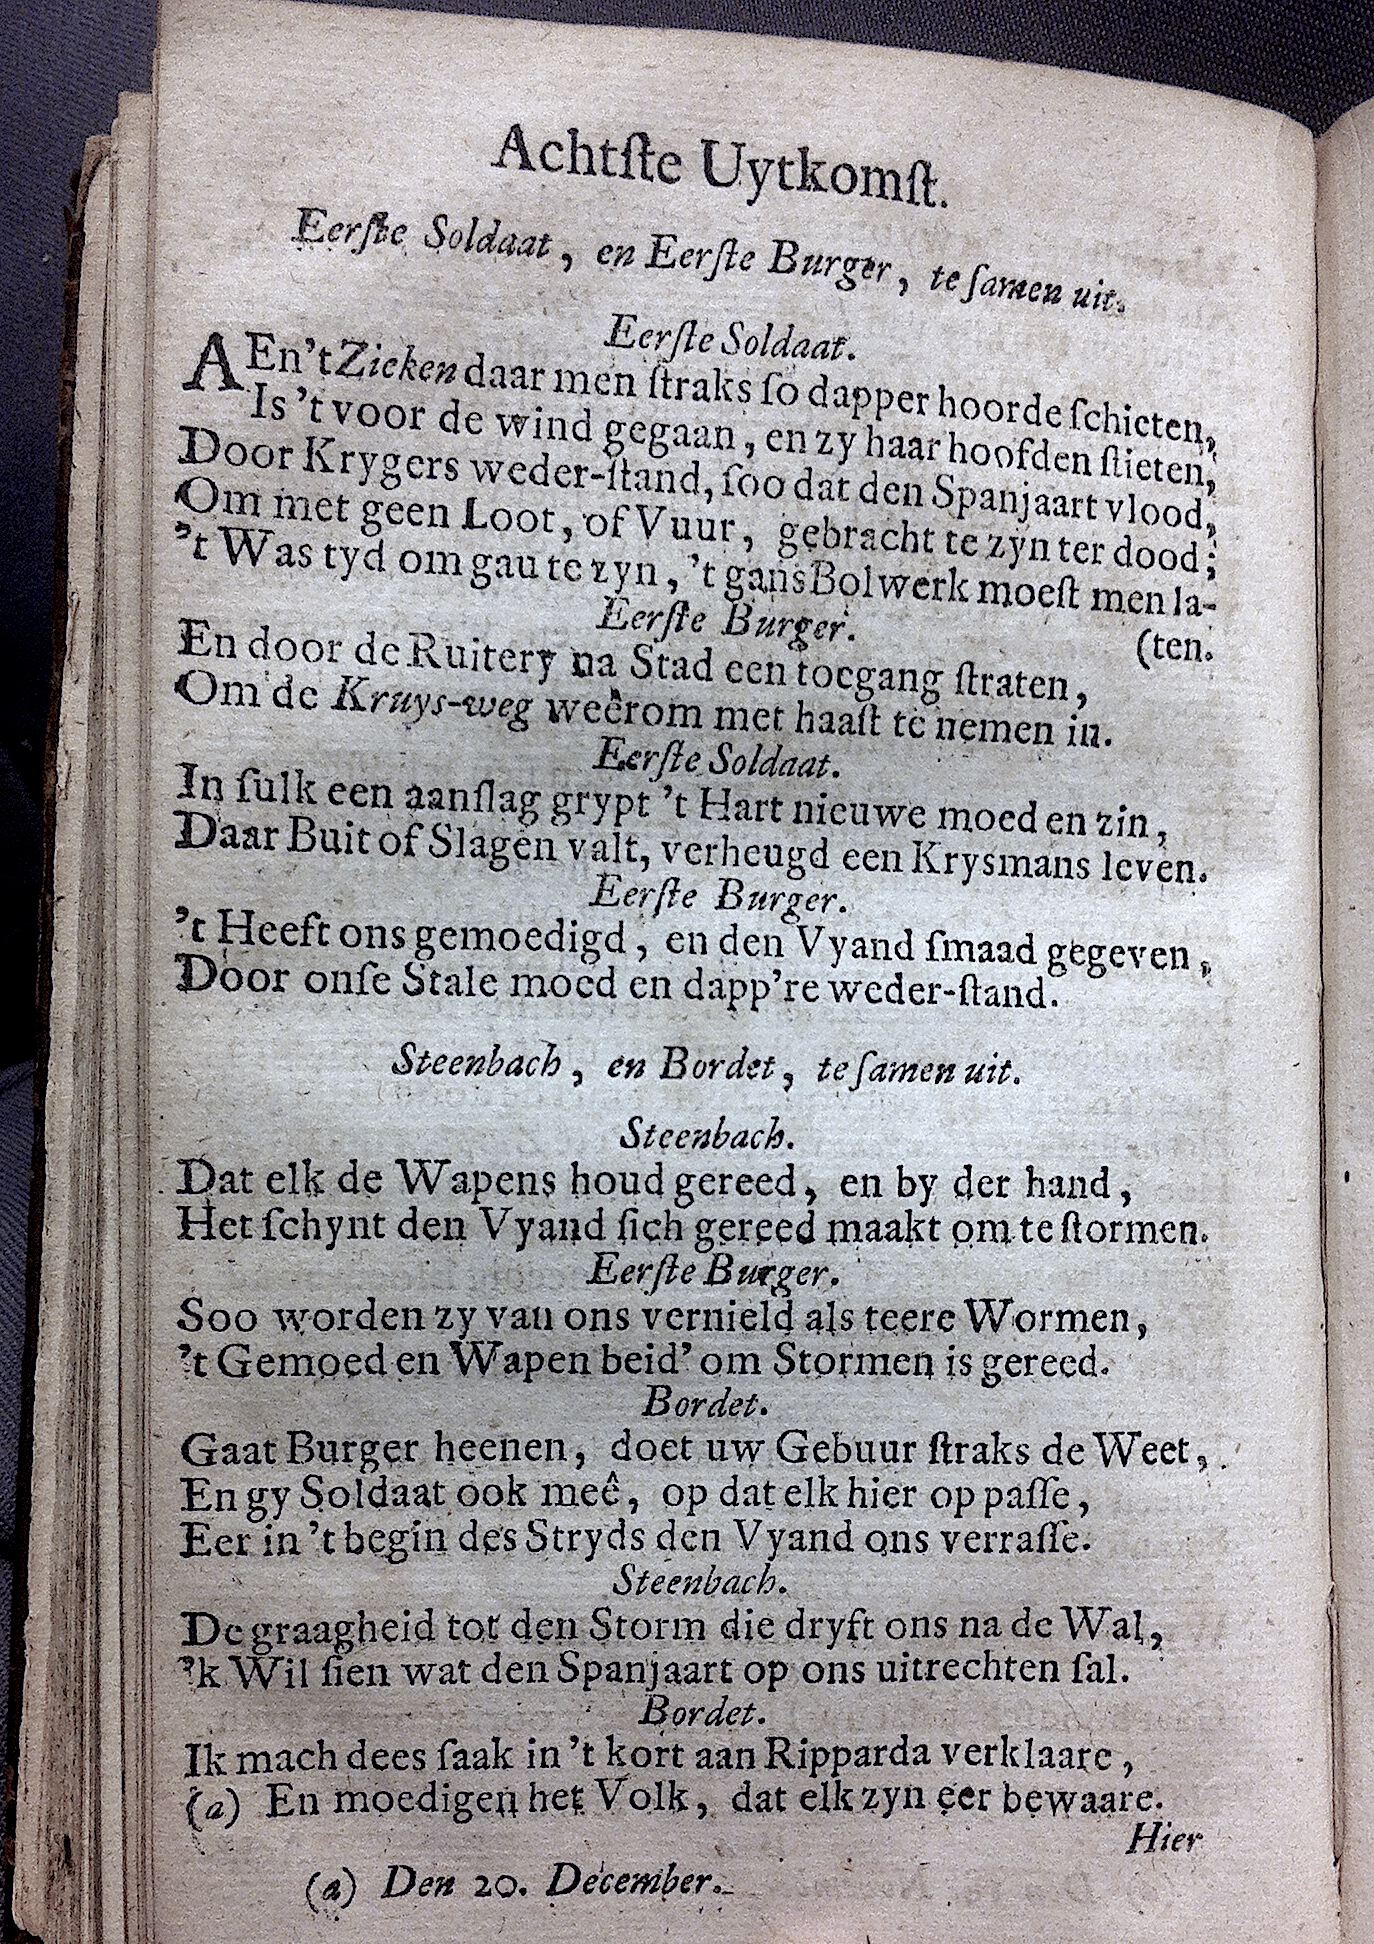 Achtſte Uytkomſt.
Eerſte Soldaat, en Eerſte Burger, te ſamen uit.
Eerſte Soldaat.
AEn 't Zieken daar men ſtraks ſo dapper hoorde ſchieten,
Is 't voor de wind gegaan, en zy haar hoofden ſtieten,
Door Krygers weder-ſtand, ſoo dat den Spanjaart vlood,
Om met geen Loot, of Vuur, gebracht te zyn ter dood;
't Was tyd om gau te zyn, 't gans Bolwerk moeſt men la-
Eerſte Burger. (ten.
En door de Ruitery na Stad een toegang ſtraten,
Om de Kruys-weg weêrom met haaſt te nemen in.
Eerſte Soldaat.
In ſulk een aanſlag grypt 't Hart nieuwe moed en zin,
Daar Buit of Slagen valt, verheugd een Krysmans leven.
Eerſte Burger.
't Heeft ons gemoedigd, en den Vyand ſmaad gegeven,
Door onſe Stale moed en dapp're weder-ſtand.
Steenbach, en Bordet, te ſamen uit.
Steenbach.
Dat elk de Wapens houd gereed, en by der hand,
Het ſchynt den Vyand ſich gereed maakt om te ſtormen.
Eerſte Burger.
Soo worden zy van ons vernield als teere Wormen,
't Gemoed en Wapen beid' om Stormen is gereed.
Bordet.
Gaat Burger heenen, doet uw Gebuur ſtraks de Weet,
En gy Soldaat ook meê, op dat elk hier op paſſe,
Eer in 't begin des Stryds den Vyand ons verraſſe.
Steenbach.
De graagheid tot den Storm die dryft ons na de Wal,
'k Wil ſien wat den Spanjaart op ons uitrechten ſal.
Bordet.
Ik mach dees ſaak in 't kort aan Ripparda verklaare,
(a) En moedigen het Volk, dat elk zyn eer bewaare.
Hier
(a) Den 20. December.